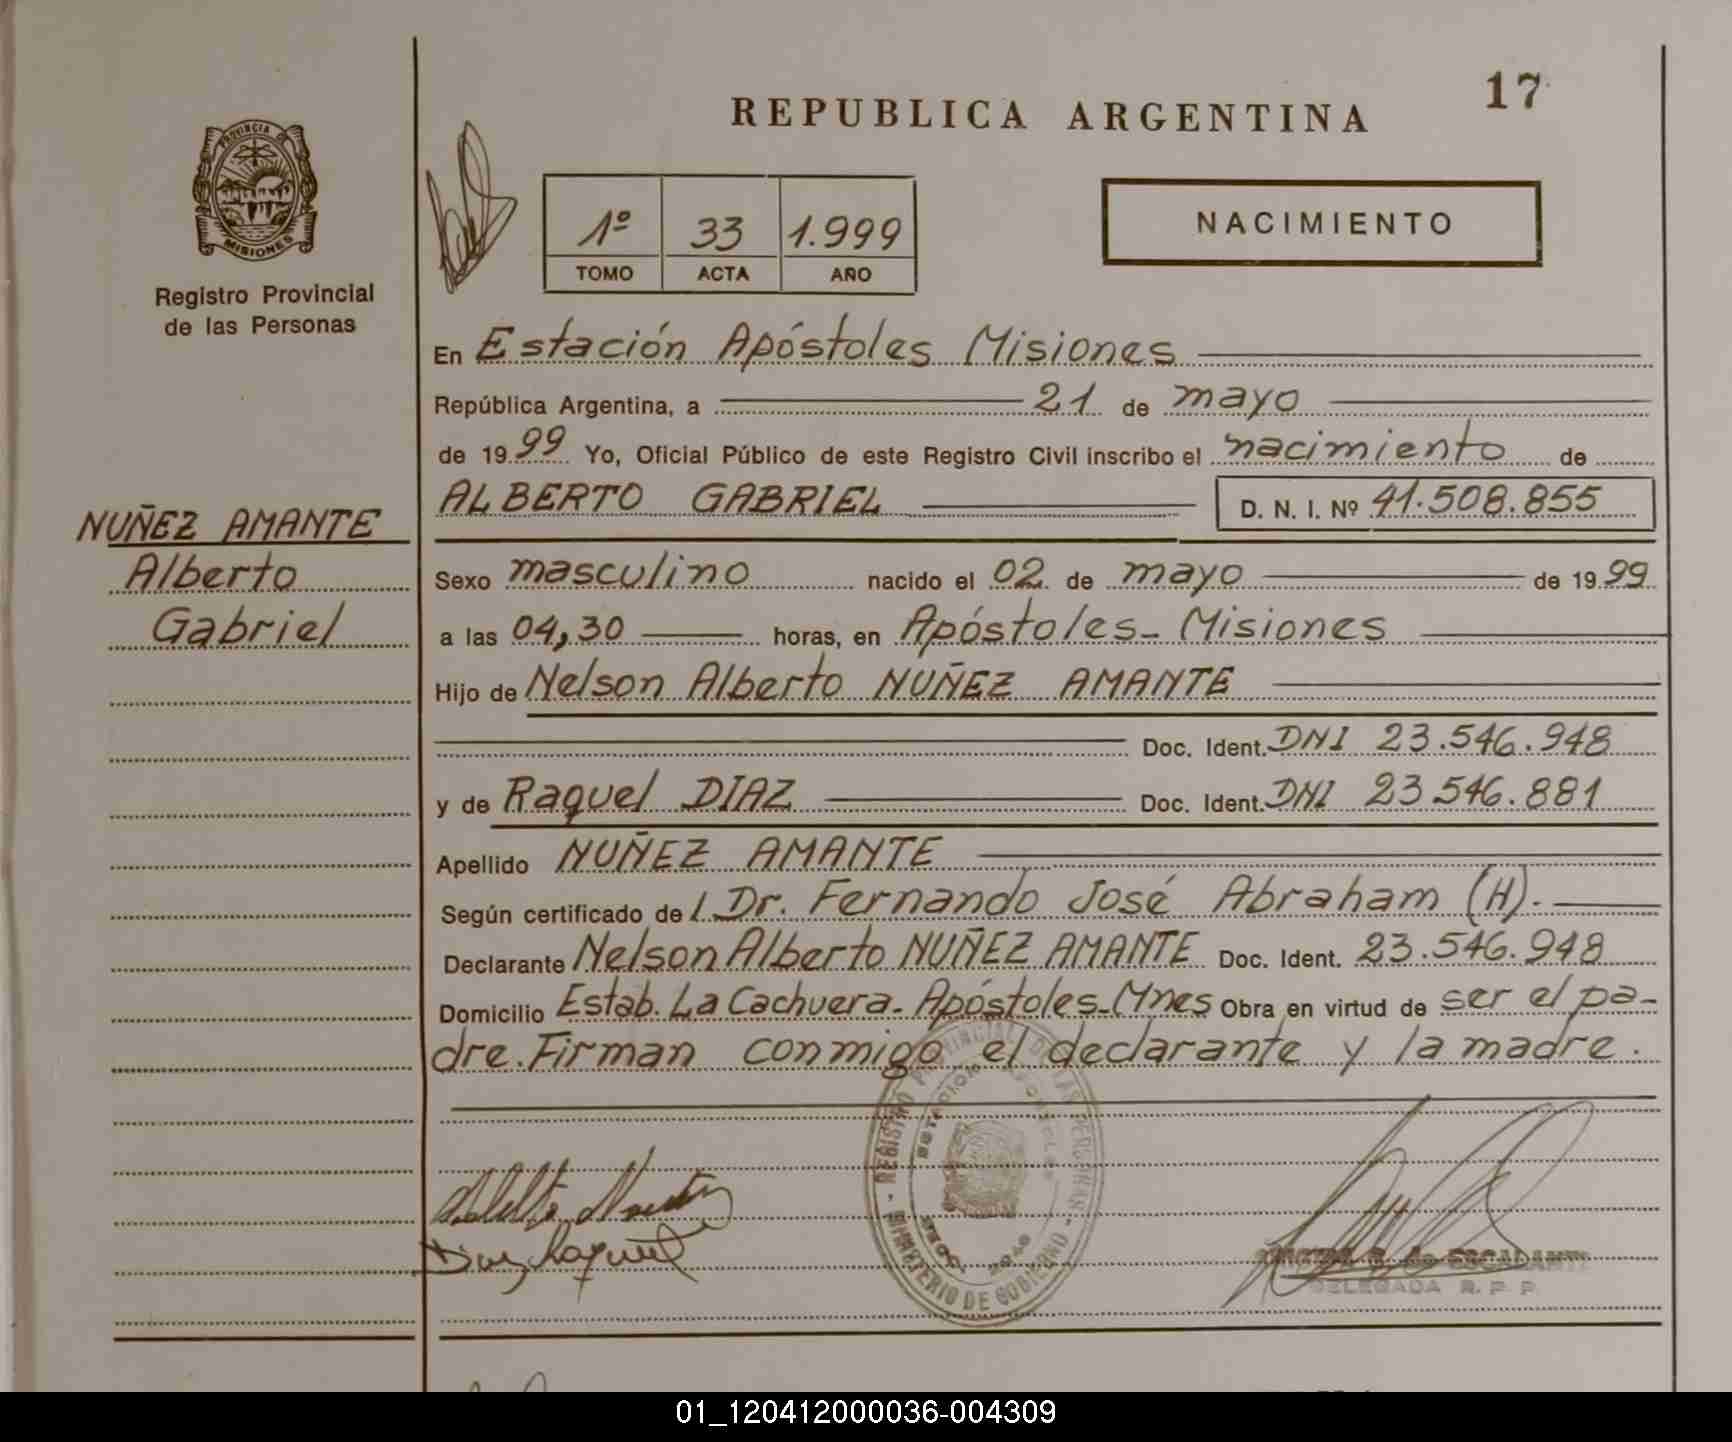 17
REPUBLICA ARGENTINA
PROVINCIA DE
MISIONES
Registro Provincial
de las Personas
1º 33 1.999
TOMO ACTA AÑO
NACIMIENTO
En Estación Apóstoles Misiones
República Argentina, a 21 de mayo
de 1999 Yo, Oficial Público de este Registro Civil inscribo el nacimiento de
ALBERTO GABRIEL D. N. I. Nº 41.508.855
NUÑEZ AMANTE
Alberto
Gabriel
Sexo masculino nacido el 02 de mayo de 1999
a las 04,30 horas, en Apóstoles - Misiones
Hijo de Nelson Alberto NUÑEZ AMANTE
Doc. Ident. DNI 23.546.948
y de Raquel DIAZ Doc. Ident. DNI 23546.881
Apellido NUÑEZ AMANTE
Según certificado de l Dr. Fernando José Abraham (H).
Declarante Nelson Alberto NUÑEZ AMANTE Doc. Ident. 23.546.948
Domicilio Estab. La Cachuera - Apóstoles - Mnes Obra en virtud de ser el pa-
dre. Firman conmigo el declarante y la madre.
REGISTRO PROVINCIAL DE LAS PERSONAS
ESTACION APOSTOLES
MINISTERIO DE GOBIERNO
Diaz Raquel
de ESCALANTE
DELEGADA R. P. P.
01_120412000036-004309